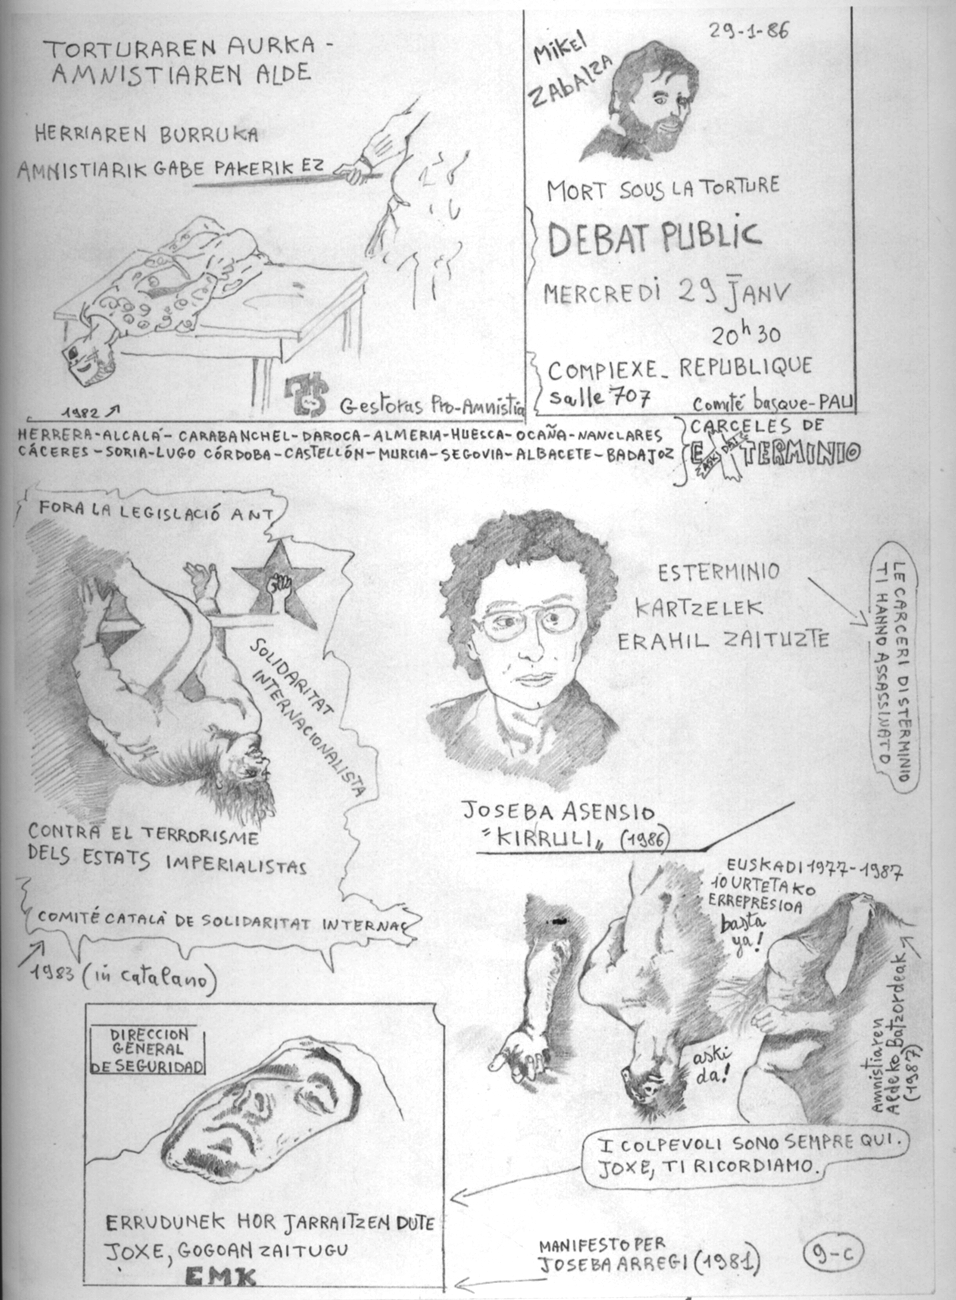 TORTURAREN AURKA -
AMNISTIAREN ALDE
HERRIAREN BURRUKA
AMNISTIARIK GABE PAKERIK EZ
1982
Gestoras Pro-Amnistia
29-1-86
MiKel
ZAbAlZA
MORT SOUS LA TORTURE
DEBAT PUBLiC
MERCREDi 29 JANV
20h30
COMPlEXE_ REPUBLIQUE
salle 707
Comité basque-PAU
HERRERA-ALCALÁ-CARABANCHEL-DAROCA-ALMERIA-HUESCA-OCAÑA-NANCLARES
CÁCERES-SORIA-LUGO CÓRDOBA-CASTELLÓN-MURCIA-SEGOVIA-ALBACETE-BADAJOZ
CARCELES DE
EXTERMINIO
FORA LA LEGISLACIÓ ANT
SOLIDARITAT
INTERNACIONALISTA
CONTRA EL TERRORISME
DELS ESTATS IMPERIALISTAS
COMITÉ CATALÀ DE SOLIDARITAT INTERNAC
1983 (in catalano)
ESTERMINIO
KARTZELEK
ERAHIL ZAITUZTE
LE CARCERI DI STERMINIO
TI HANNO ASSASSINATO
JOSEBA ASENSIO
"KIRRULI" (1986)
EUSKADI 1977-1987
10 URTETAKO
ERREPRESIOA
basta
ya!
aski
da!
Amnistiaren
Aldeko Batzordeak
(1987)
I COLPEVOLI SONO SEMPRE QUI.
JOXE, TI RICORDIAMO.
DIRECCION
GENERAL
DE SEGURIDAD
ERRUDUNEK HOR JARRAITZEN DUTE
JOXE, GOGOAN ZAITUGU
EMK
MANIFESTO PER
JOSEBA ARREGI (1981)
9-c